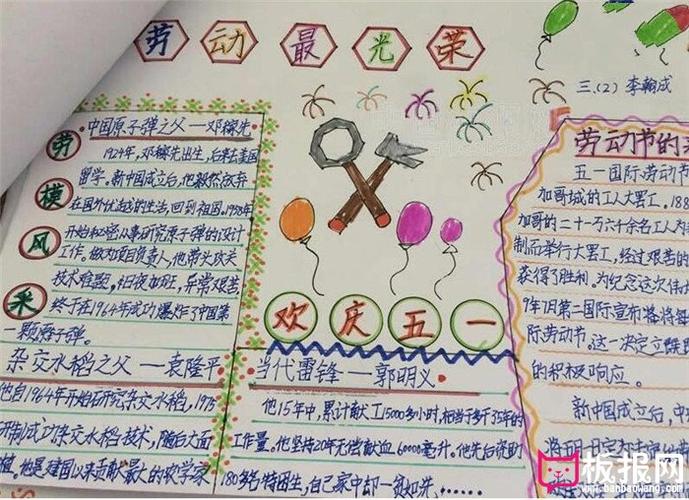 劳动最光荣
三.(2) 李翰成
中国原子弹之父——邓稼先
劳模风采
1924年,邓稼先出生,后来去美国
留学。新中国成立后,他毅然放弃
在国外优越的生活,回到祖国。1958年
开始秘密从事研究原子弹的设计
工作。做为项目负责人,他带头攻关
技术难题,日夜加班,异常艰苦
终于在1964年成功爆炸了中国第
一颗原子弹。
杂交水稻之父——袁隆平
他自1964年开始研究杂交水稻,1973
研制成功杂交水稻技术,随后大面
植,他是建国以来贡献最大的农学家
欢庆五一
当代雷锋——郭明义
他15年中,累计献工15000多小时,相当于多干5年的
工作量。他坚持20年无偿献血60000毫升。他先后资助
180多名特困生,自己家中却一贫如洗……
劳动节的
五一国际劳动节
加哥城的工人大罢工。188
加哥的二十一万六千余名工人为
制而举行大罢工,经过艰苦的
获得了胜利。为纪念这次伟大
9年7月第二国际宣布将将每
际劳动节。这一决定立
的积极响应。
新中国成立后,中
将5月1日定
板报网
www.banbaowang.com